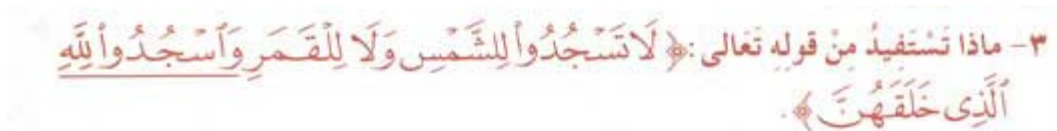 ٣- ماذا تَسْتَفيدُ مِنْ قولِهِ تَعَالى :﴿ لَا تَسْجُدُوا۟ لِلشَّمْسِ وَلَا لِلْقَمَرِ وَٱسْجُدُوا۟ لِلَّهِ
ٱلَّذِى خَلَقَهُنَّ ﴾.